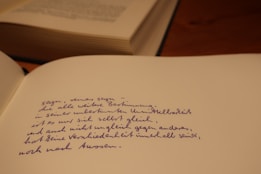 Seyn, reines Seyn –
ohne alle weitere Bestimmung,
in seiner unbestimmten Unmittelbarkeit
ist es nur sich selbst gleich,
und auch nicht ungleich gegen anderes,
hat keine Verschiedenheit innerhalb seiner,
noch nach Aussen.